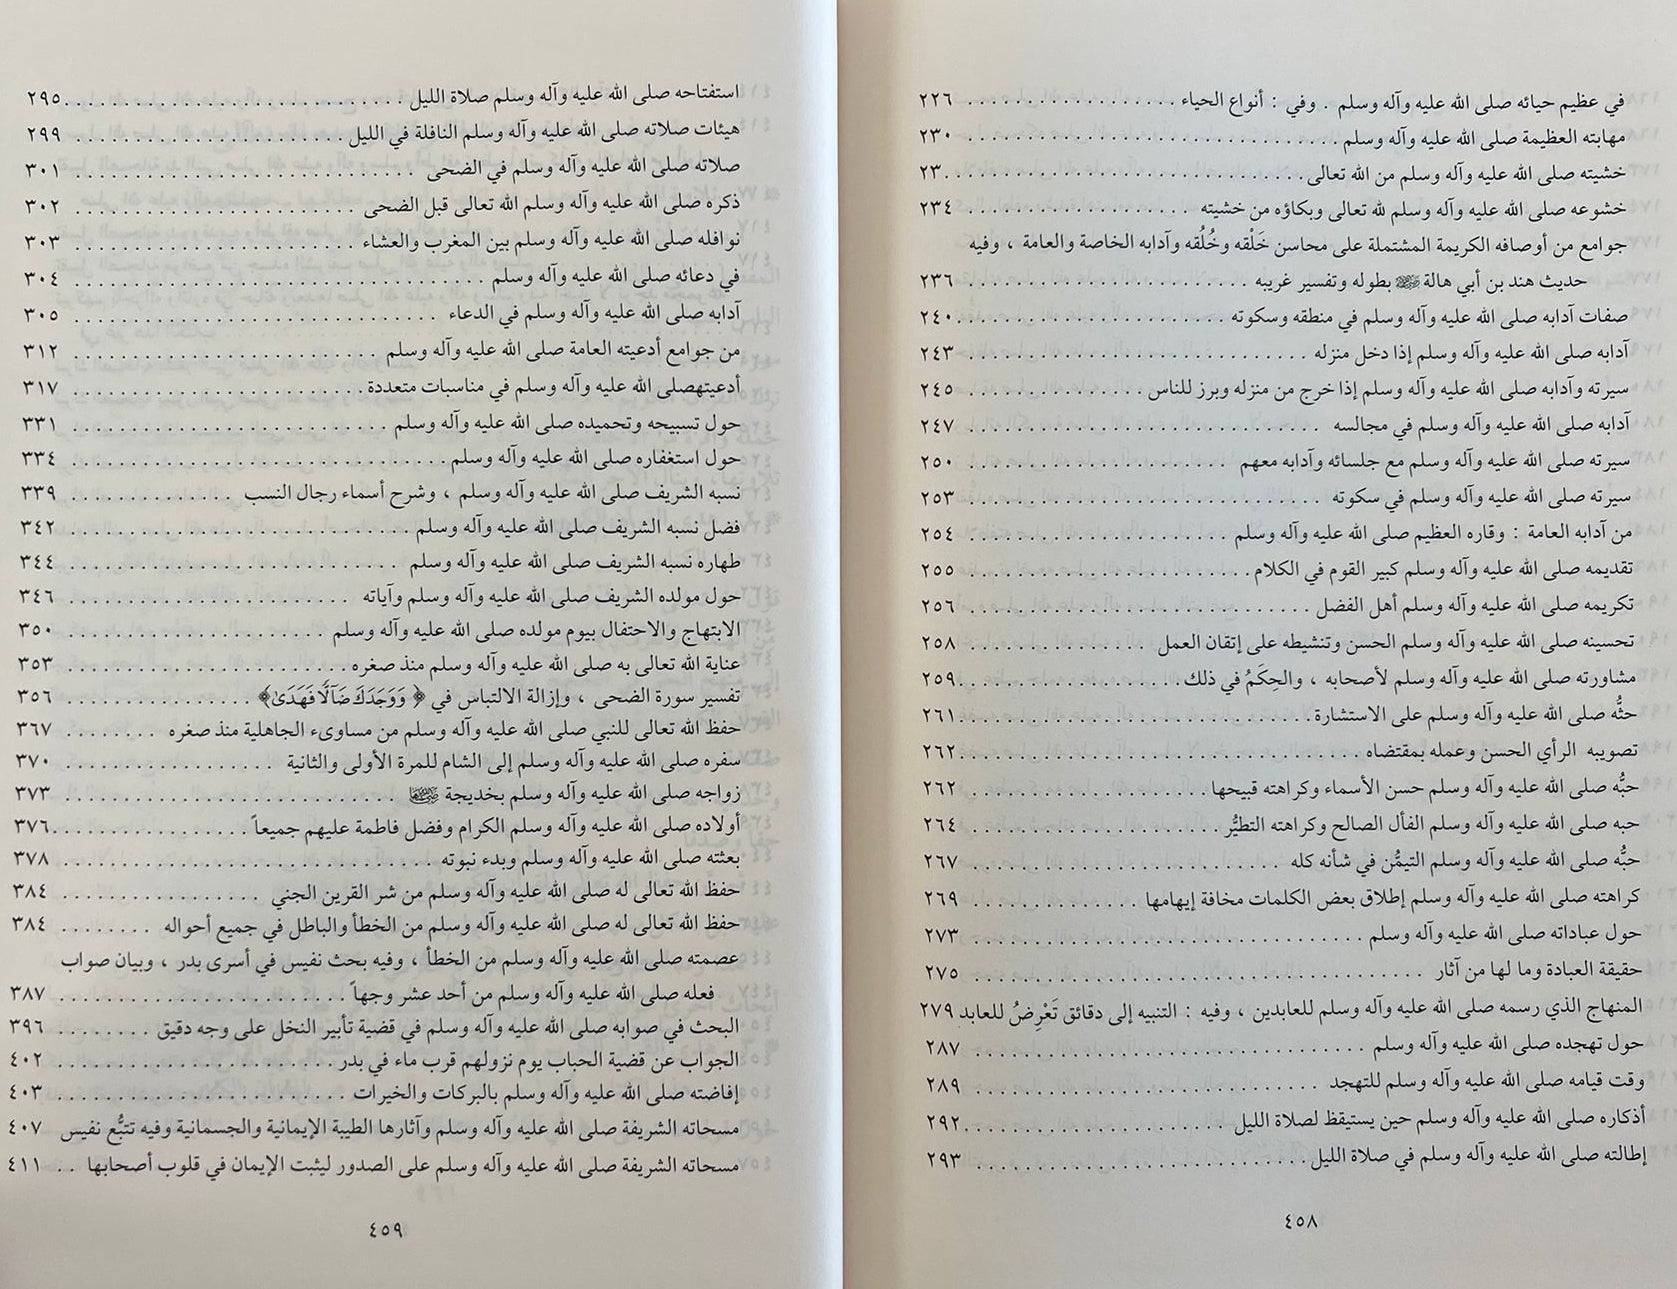 في عظيم حيائه صلى الله عليه وآله وسلم . وفي : أنواع الحياء . . . . . . . . . . . . . . . . . . ٢٢٦
مهابته العظيمة صلى الله عليه وآله وسلم . . . . . . . . . . . . . . . . . . ٢٣٠
خشيته صلى الله عليه وآله وسلم من الله تعالى . . . . . . . . . . . . . . . . . . ٢٣٠
خشوعه صلى الله عليه وآله وسلم لله تعالى وبكاؤه من خشيته . . . . . . . . . . . . . . . . . . ٢٣٤
جوامع من أوصافه الكريمة المشتملة على محاسن خَلْقه وخُلُقه وآدابه الخاصة والعامة ، وفيه
حديث هند بن أبي هالة رضي الله عنه بطوله وتفسير غريبه . . . . . . . . . . . . . . . . . . ٢٣٦
صفات آدابه صلى الله عليه وآله وسلم في منطقه وسكوته . . . . . . . . . . . . . . . . . . ٢٤٠
آدابه صلى الله عليه وآله وسلم إذا دخل منزله . . . . . . . . . . . . . . . . . . ٢٤٣
سيرته وآدابه صلى الله عليه وآله وسلم إذا خرج من منزله وبرز للناس . . . . . . . . . . . . . . ٢٤٥
آدابه صلى الله عليه وآله وسلم في مجالسه . . . . . . . . . . . . . . . . . . ٢٤٧
سيرته صلى الله عليه وآله وسلم مع جلسائه وآدابه معهم . . . . . . . . . . . . . . . . . . ٢٥٠
سيرته صلى الله عليه وآله وسلم في سكوته . . . . . . . . . . . . . . . . . . ٢٥٣
من آدابه العامة : وقاره العظيم صلى الله عليه وآله وسلم . . . . . . . . . . . . . . . . . . ٢٥٤
تقديمه صلى الله عليه وآله وسلم كبير القوم في الكلام . . . . . . . . . . . . . . . . . . ٢٥٥
تكريمه صلى الله عليه وآله وسلم أهل الفضل . . . . . . . . . . . . . . . . . . ٢٥٦
تحسينه صلى الله عليه وآله وسلم الحسن وتنشيطه على إتقان العمل . . . . . . . . . . . . . . ٢٥٨
مشاورته صلى الله عليه وآله وسلم لأصحابه ، والحِكَمُ في ذلك . . . . . . . . . . . . . . . . . . ٢٥٩
حثُّه صلى الله عليه وآله وسلم على الاستشارة . . . . . . . . . . . . . . . . . . ٢٦١
تصويبه الرأي الحسن وعمله بمقتضاه . . . . . . . . . . . . . . . . . . ٢٦٢
حبُّه صلى الله عليه وآله وسلم حسن الأسماء وكراهته قبيحها . . . . . . . . . . . . . . . . . . ٢٦٢
حبه صلى الله عليه وآله وسلم الفأل الصالح وكراهته التطيُّر . . . . . . . . . . . . . . . . . . ٢٦٤
حبُّه صلى الله عليه وآله وسلم التيمُّن في شأنه كله . . . . . . . . . . . . . . . . . . ٢٦٧
كراهته صلى الله عليه وآله وسلم إطلاق بعض الكلمات مخافة إيهامها . . . . . . . . . . . . . . ٢٦٩
حول عباداته صلى الله عليه وآله وسلم . . . . . . . . . . . . . . . . . . ٢٧٣
حقيقة العبادة وما لها من آثار . . . . . . . . . . . . . . . . . . ٢٧٥
المنهاج الذي رسمه صلى الله عليه وآله وسلم للعابدين ، وفيه : التنبيه إلى دقائق تَعْرِضُ للعابد ٢٧٩
حول تهجده صلى الله عليه وآله وسلم . . . . . . . . . . . . . . . . . . ٢٨٧
وقت قيامه صلى الله عليه وآله وسلم للتهجد . . . . . . . . . . . . . . . . . . ٢٨٩
أذكاره صلى الله عليه وآله وسلم حين يستيقظ لصلاة الليل . . . . . . . . . . . . . . . . . . ٢٩٢
إطالته صلى الله عليه وآله وسلم في صلاة الليل . . . . . . . . . . . . . . . . . . ٢٩٣
٤٥٨
استفتاحه صلى الله عليه وآله وسلم صلاة الليل . . . . . . . . . . . . . . . . . . ٢٩٥
هيئات صلاته صلى الله عليه وآله وسلم النافلة في الليل . . . . . . . . . . . . . . . . . . ٢٩٩
صلاته صلى الله عليه وآله وسلم في الضحى . . . . . . . . . . . . . . . . . . ٣٠١
ذكره صلى الله عليه وآله وسلم الله تعالى قبل الضحى . . . . . . . . . . . . . . . . . . ٣٠٢
نوافله صلى الله عليه وآله وسلم بين المغرب والعشاء . . . . . . . . . . . . . . . . . . ٣٠٣
في دعائه صلى الله عليه وآله وسلم . . . . . . . . . . . . . . . . . . ٣٠٤
آدابه صلى الله عليه وآله وسلم في الدعاء . . . . . . . . . . . . . . . . . . ٣٠٥
من جوامع أدعيته العامة صلى الله عليه وآله وسلم . . . . . . . . . . . . . . . . . . ٣١٢
أدعيتهصلى الله عليه وآله وسلم في مناسبات متعددة . . . . . . . . . . . . . . . . . . ٣١٧
حول تسبيحه وتحميده صلى الله عليه وآله وسلم . . . . . . . . . . . . . . . . . . ٣٣١
حول استغفاره صلى الله عليه وآله وسلم . . . . . . . . . . . . . . . . . . ٣٣٤
نسبه الشريف صلى الله عليه وآله وسلم ، وشرح أسماء رجال النسب . . . . . . . . . . . . . . ٣٣٩
فضل نسبه الشريف صلى الله عليه وآله وسلم . . . . . . . . . . . . . . . . . . ٣٤٢
طهاره نسبه الشريف صلى الله عليه وآله وسلم . . . . . . . . . . . . . . . . . . ٣٤٤
حول مولده الشريف صلى الله عليه وآله وسلم وآياته . . . . . . . . . . . . . . . . . . ٣٤٦
الابتهاج والاحتفال بيوم مولده صلى الله عليه وآله وسلم . . . . . . . . . . . . . . . . . . ٣٥٠
عناية الله تعالى به صلى الله عليه وآله وسلم منذ صغره . . . . . . . . . . . . . . . . . . ٣٥٣
تفسير سورة الضحى ، وإزالة الالتباس في ﴿ وَوَجَدَكَ ضَآلًّا فَهَدَىٰ﴾ . . . . . . . . . . . . . . ٣٥٦
حفظ الله تعالى للنبي صلى الله عليه وآله وسلم من مساوىء الجاهلية منذ صغره . . . . . . . . ٣٦٧
سفره صلى الله عليه وآله وسلم إلى الشام للمرة الأولى والثانية . . . . . . . . . . . . . . . . . . ٣٧٠
زواجه صلى الله عليه وآله وسلم بخديجة رضي الله عنها . . . . . . . . . . . . . . . . . . ٣٧٣
أولاده صلى الله عليه وآله وسلم الكرام وفضل فاطمة عليهم جميعاً . . . . . . . . . . . . . . ٣٧٦
بعثته صلى الله عليه وآله وسلم وبدء نبوته . . . . . . . . . . . . . . . . . . ٣٧٨
حفظ الله تعالى له صلى الله عليه وآله وسلم من شر القرين الجني . . . . . . . . . . . . . . . . ٣٨٤
حفظ الله تعالى له صلى الله عليه وآله وسلم من الخطأ والباطل في جميع أحواله . . . . . . . . ٣٨٤
عصمته صلى الله عليه وآله وسلم من الخطأ ، وفيه بحث نفيس في أسرى بدر ، وبيان صواب
فعله صلى الله عليه وآله وسلم من أحد عشر وجهاً . . . . . . . . . . . . . . . . . . ٣٨٧
البحث في صوابه صلى الله عليه وآله وسلم في قضية تأبير النخل على وجه دقيق . . . . . . . . ٣٩٦
الجواب عن قضية الحباب يوم نزولهم قرب ماء في بدر . . . . . . . . . . . . . . . . . . ٤٠٢
إفاضته صلى الله عليه وآله وسلم بالبركات والخيرات . . . . . . . . . . . . . . . . . . ٤٠٣
مسحاته الشريفة صلى الله عليه وآله وسلم وآثارها الطيبة الإيمانية والجسمانية وفيه تتبُّع نفيس ٤٠٧
مسحاته الشريفة صلى الله عليه وآله وسلم على الصدور ليثبت الإيمان في قلوب أصحابها . . ٤١١
٤٥٩